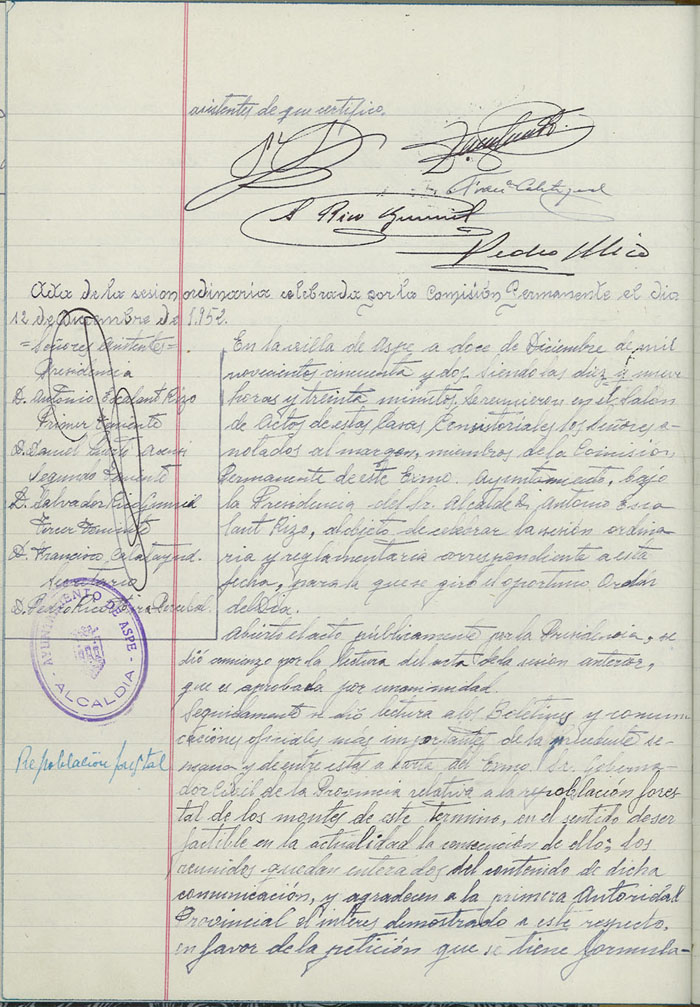 asistentes de que certifico.
S. Rico Gumiel
Pedro Mico
Acta de la sesion ordinaria celebrada por la Comisión Permanente el dia
12 de diciembre de 1.952.
=Señores asistentes=
Presidencia
D. Antonio Escolant Rizo
Primer Teniente
D. Daniel
Segundo Teniente
D. Salvador Rico Gumiel
Tercer Teniente
D. Francisco Calatayud.
Secretario
D. Pedro
AYUNTAMIENTO DE ASPE
- ALCALDIA -
En la villa de Aspe a doce de Diciembre de mil
novecientos cincuenta y dos. Siendo las diez y nueve
horas y treinta minutos, se reunieron en el Salón
de Actos de estas Casas Consistoriales los Señores a-
notados al margen, miembros de la Comision
Permanente de este Excmo. Ayuntamiento, bajo
la Presidencia del Sr. Alcalde D. Antonio Esco
lant Rizo, al objeto de celebrar la sesión ordina-
ria y reglamentaria correspondiente a esta
fecha, para la que se giró el oportuno Orden
del Dia.
Abierto el acto públicamente por la Presidencia, se
dió comienzo por la lectura del acta de la sesion anterior,
que es aprobada por unanimidad.
Seguidamente se dió lectura a los Boletines y comuni
caciones oficiales más importantes de la precedente se-
mana y de entre estas a la del Excmo. Sr. Goberna-
dor Civil de la Provincia relativa a la repoblación fores
tal de los montes de este término, en el sentido de ser
factible en la actualidad la consecución de ello; los
reunidos quedan enterados del contenido de dicha
comunicación, y agradecen a la primera Autoridad
Provincial el interes demostrado a este respecto,
en favor de la petición que se tiene formula-
Repoblación forestal